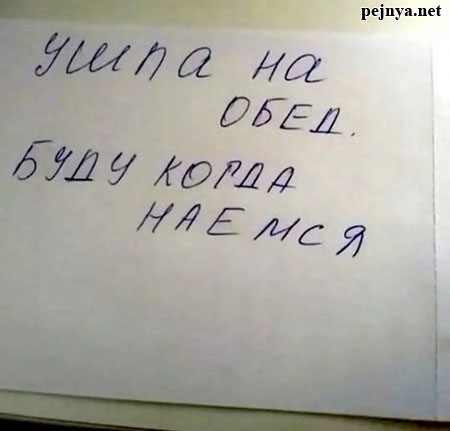 pejnya.net
УШЛА НА
ОБЕД.
БУДУ КОГДА
НАЕМСЯ